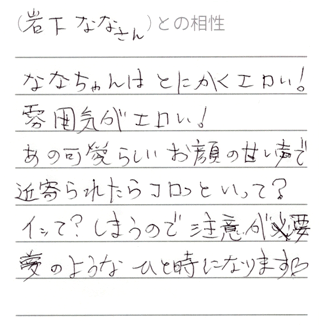 (岩下ななさん)との相性
ななちゃんはとにかくエロい!
雰囲気がエロい!
あの可愛らしいお顔の甘い声で
近寄られたらコロっといって?
イッて?しまうので注意が必要
夢のようなひと時になります♡